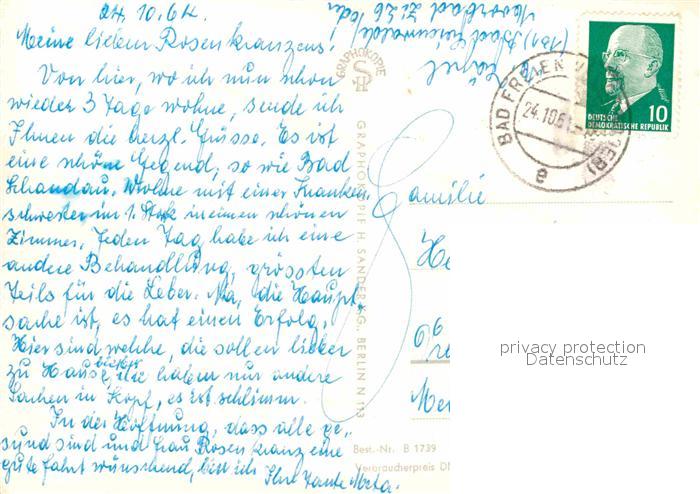 24.10.61.
Meine lieben Rosenkranzens!
Von hier, wo ich nun schon
wieder 3 Tage wohne, sende ich
Ihnen die herzl. Grüsse. Es ist
eine schöne Gegend, so wie Bad
Schandau. Wohne mit einer Kranken,,
schwester im 1. Stock in einem schönen
Zimmer. Jeden Tag habe ich eine
andere Behandlung, grössten
Teils für die Leber. Na, die Haupt
sache ist, es hat einen Erfolg,
Hier sind welche, die sollen lieber
zu Hause bleiben, die haben nur andere
Sachen im Kopf, es ist schlimm.
In der Hoffnung, dass alle ge,,
sund sind und Frau Rosenkranz eine
gute Fahrt wünschend, bin ich Ihre Tante Meta.
GRAPHOKOPIE
SH
GRAPHOKOPIE H. SANDER K.G. BERLIN N 113
Best.-Nr. B 1739
Verbraucherpreis DM
(Bad Freienwalde/Oder
Moorbad
BAD FREIENW
24.10.61
e
10
DEUTSCHE
DEMOKRATISCHE REPUBLIK
Familie
He
Me
privacy protection
Datenschutz